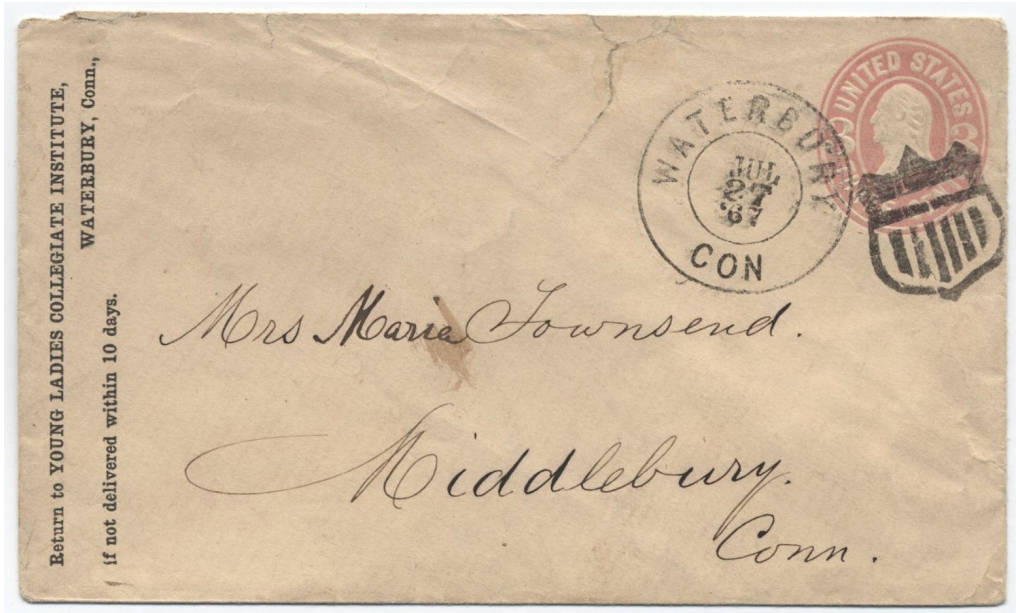 Return to YOUNG LADIES COLLEGIATE INSTITUTE,
WATERBURY, Conn.,
if not delivered within 10 days.
WATERBURY
JUL
27
'67
CON
UNITED STATES
3 3
Mrs Maria Townsend.
Middlebury.
Conn.